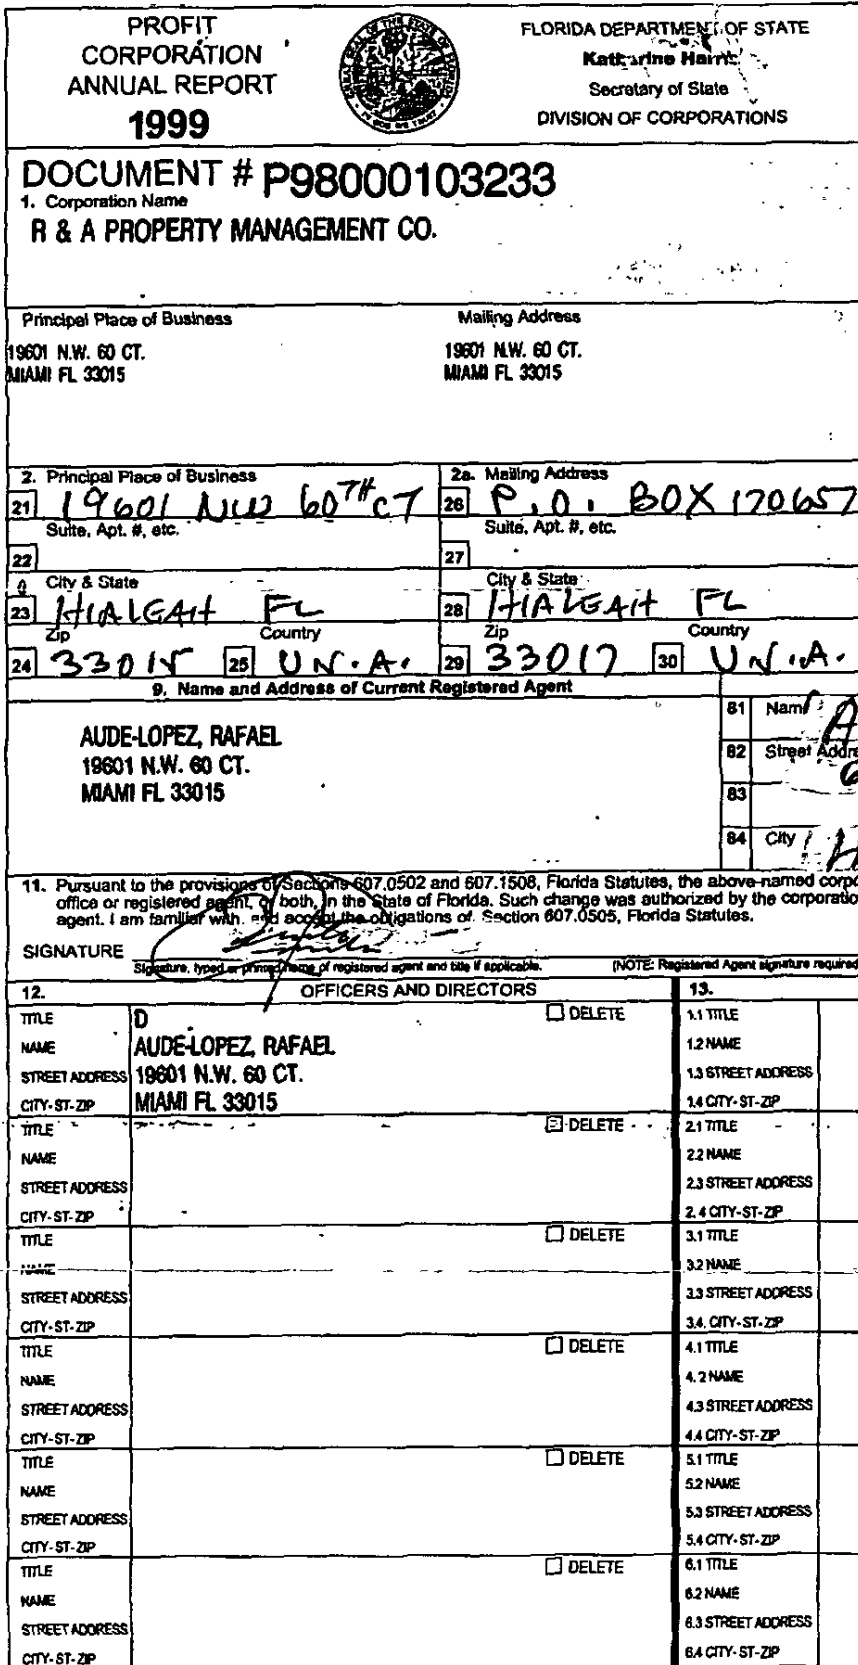 PROFIT
CORPORATION
ANNUAL REPORT
1999
FLORIDA DEPARTMENT OF STATE
Katherine Harris
Secretary of State
DIVISION OF CORPORATIONS
DOCUMENT # P98000103233
1. Corporation Name
R & A PROPERTY MANAGEMENT CO.
Principal Place of Business
Mailing Address
19601 N.W. 60 CT.
MIAMI FL 33015
19601 N.W. 60 CT.
MIAMI FL 33015
2. Principal Place of Business
2a. Mailing Address
21 19601 NW 60TH CT
26 P.O. BOX 170657
Suite, Apt. #, etc.
Suite, Apt. #, etc.
22
27
City & State
City & State
23 HIALEAH FL
28 HIALEAH FL
Zip Country
Zip Country
24 33015 25 U.S.A.
29 33017 30 U.S.A.
9. Name and Address of Current Registered Agent
AUDE-LOPEZ, RAFAEL
19601 N.W. 60 CT.
MIAMI FL 33015
81 Name
82 Street Addre
83
84 City
11. Pursuant to the provisions of Sections 607.0502 and 607.1508, Florida Statutes, the above-named corpo
office or registered agent, or both, in the State of Florida. Such change was authorized by the corporatio
agent. I am familiar with, and accept the obligations of, Section 607.0505, Florida Statutes.
SIGNATURE
Signature, typed or printed name of registered agent and title if applicable.
(NOTE: Registered Agent signature required
12. OFFICERS AND DIRECTORS
13.
TITLE D DELETE
NAME AUDE-LOPEZ, RAFAEL
STREET ADDRESS 19601 N.W. 60 CT.
CITY-ST-ZIP MIAMI FL 33015
1.1 TITLE
1.2 NAME
1.3 STREET ADDRESS
1.4 CITY-ST-ZIP
TITLE DELETE
NAME
STREET ADDRESS
CITY-ST-ZIP
2.1 TITLE
2.2 NAME
2.3 STREET ADDRESS
2.4 CITY-ST-ZIP
TITLE DELETE
NAME
STREET ADDRESS
CITY-ST-ZIP
3.1 TITLE
3.2 NAME
3.3 STREET ADDRESS
3.4. CITY-ST-ZIP
TITLE DELETE
NAME
STREET ADDRESS
CITY-ST-ZIP
4.1 TITLE
4.2 NAME
4.3 STREET ADDRESS
4.4 CITY-ST-ZIP
TITLE DELETE
NAME
STREET ADDRESS
CITY-ST-ZIP
5.1 TITLE
5.2 NAME
5.3 STREET ADDRESS
5.4 CITY-ST-ZIP
TITLE DELETE
NAME
STREET ADDRESS
CITY-ST-ZIP
6.1 TITLE
6.2 NAME
6.3 STREET ADDRESS
6.4 CITY-ST-ZIP